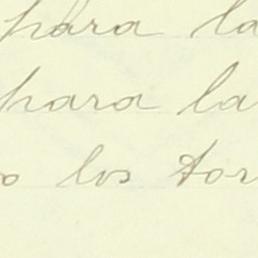 para la
para la
o los tor